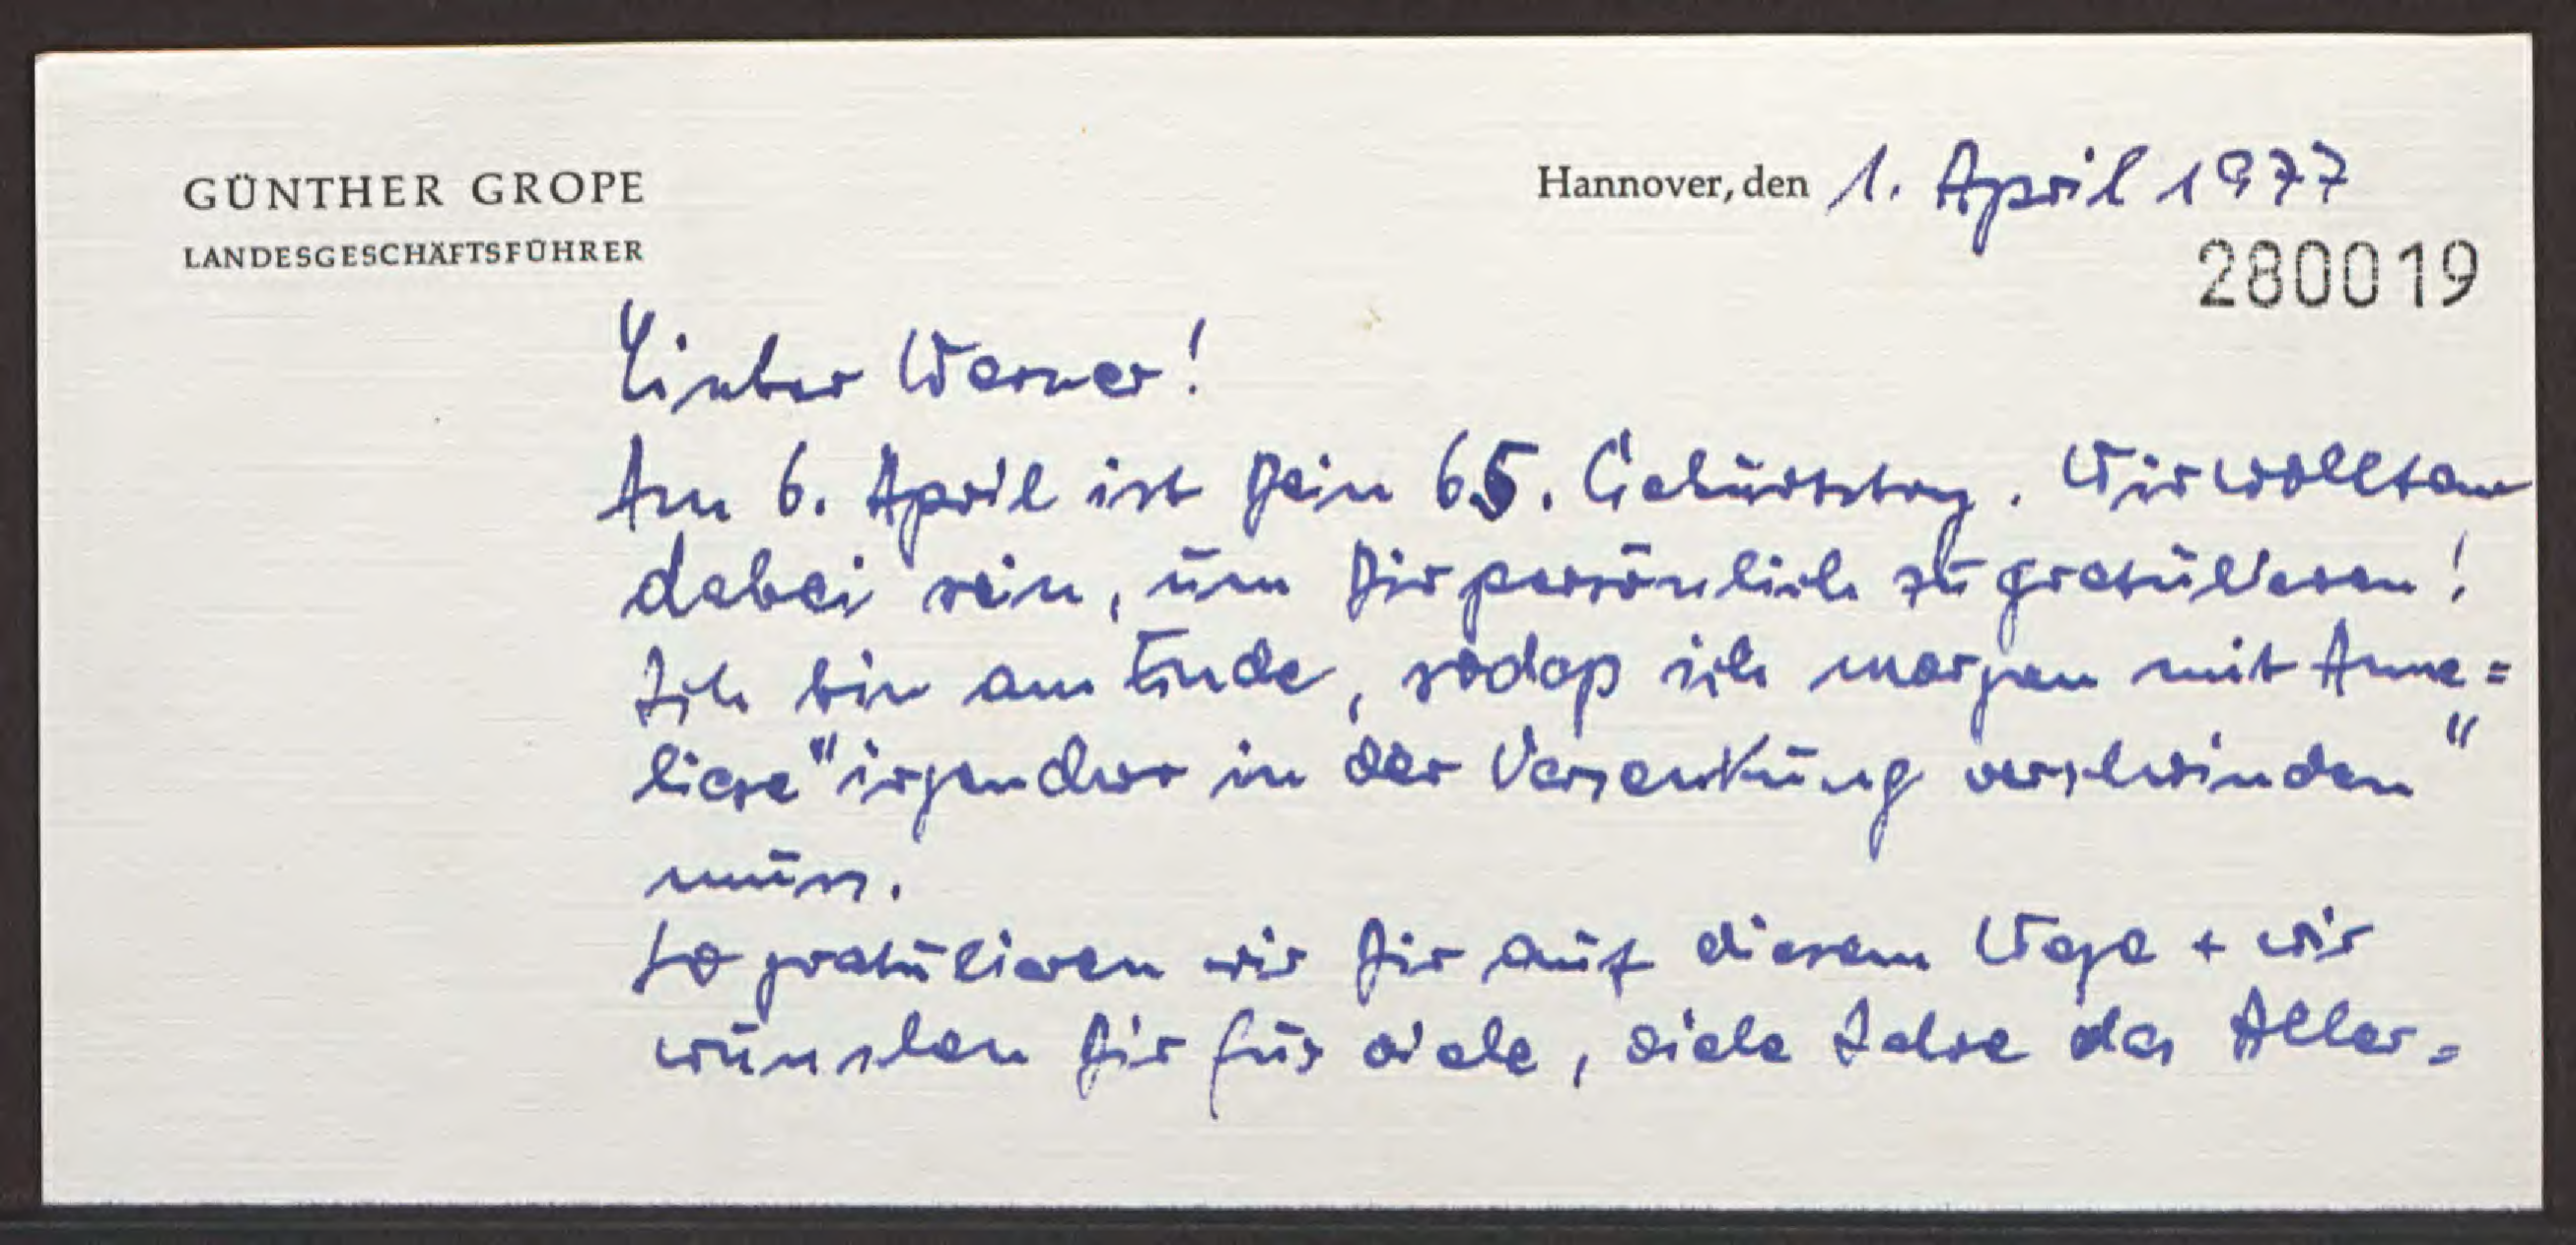 GÜNTHER GROPE
LANDESGESCHÄFTSFÜHRER
Hannover, den 1. April 1977
280019
Lieber Werner!
Am 6. April ist Dein 65. Geburtstag. Wir wollten
dabei sein, um Dir persönlich zu gratulieren!
Ich bin am Ende, sodaß ich morgen mit Anne=
liese "irgendwo in der Versenkung verschwinden"
muss.
So gratulieren wir Dir auf diesem Wege + wir
wünschen Dir für viele, viele Jahre das Aller=